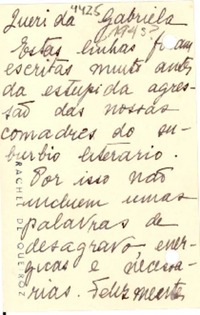 4425
Querida Gabriela
1943?
Estas linhas foram
escritas muito antes
da estupida agres-
são das nossas
comadres do su-
burbio literario.
Por isso não
incluem umas
palavras de
desagravo ener-
gicas e necessa-
rias. Felizmente
RACHEL DE QUEIROZ